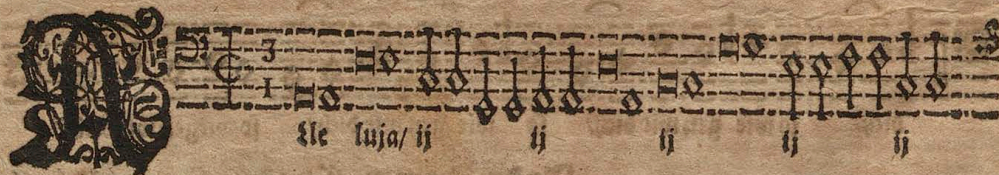 3
1
ALle luja/ ij ij ij ij ij